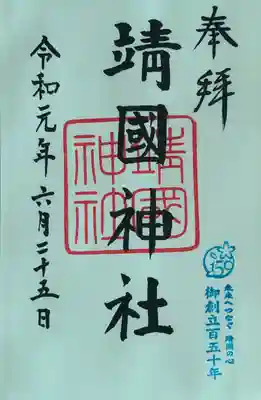 奉拝
靖國神社
靖國神社
令和元年六月二十五日
150
未来へつなぐ 靖國の心
御創立百五十年